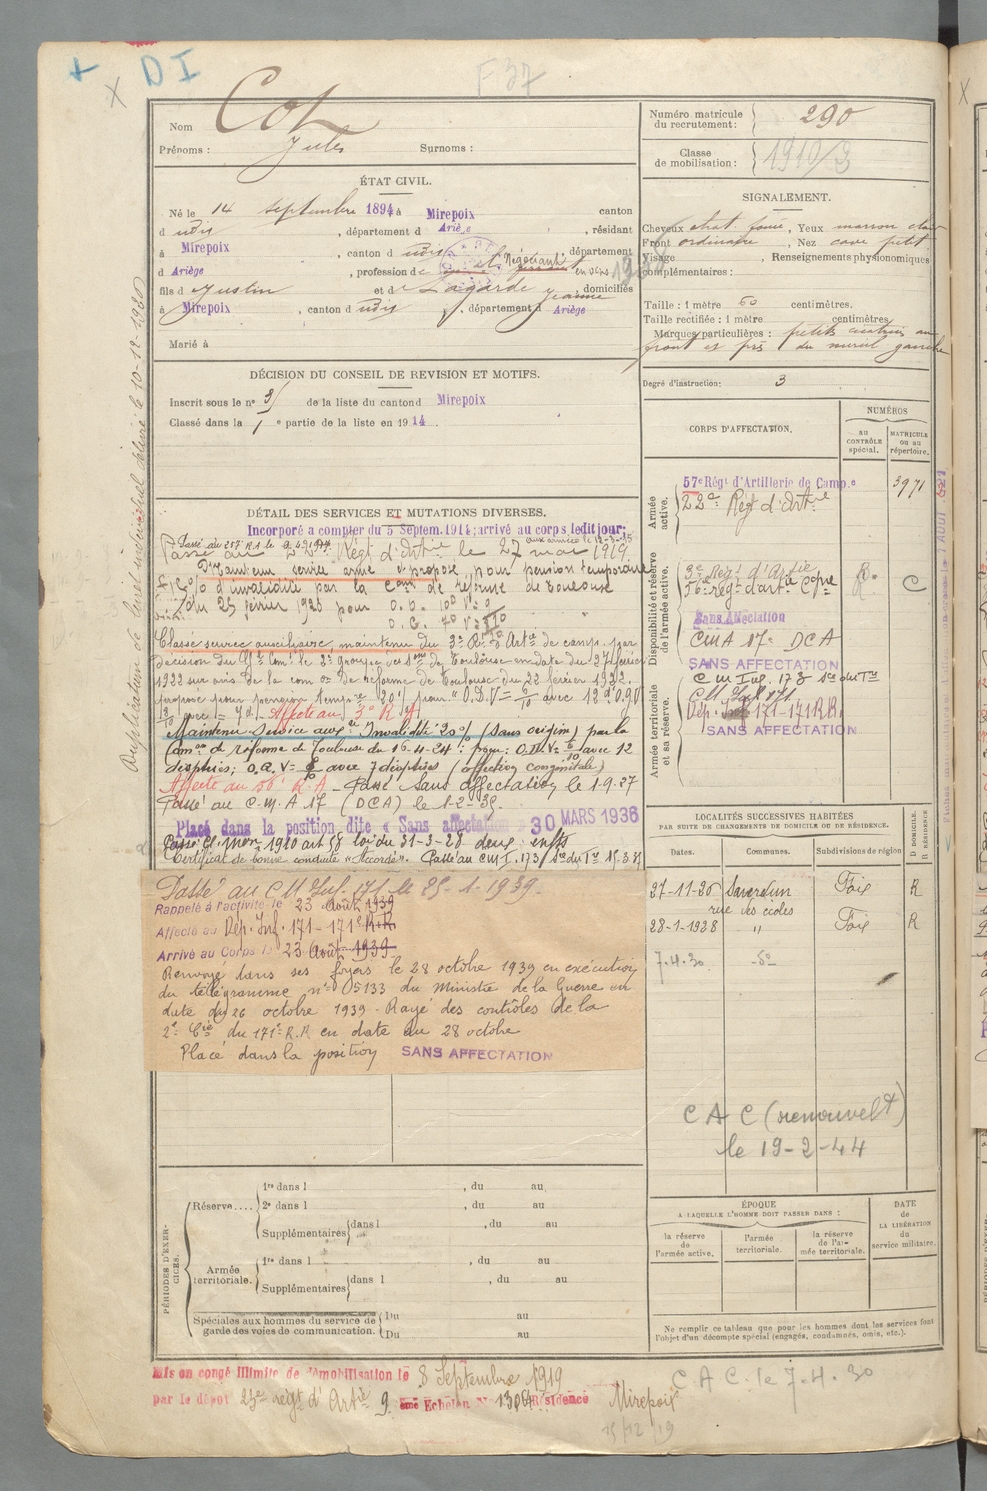 + D I
X
F 37
Nom Cot
Prénoms : Jules Surnoms :
Numéro matricule du recrutement : 290
Classe de mobilisation : 1910/3
ÉTAT CIVIL.
Né le 14 septembre 1894 à Mirepoix canton
d udis, département d Ariège, résidant
à Mirepoix, canton d udis, département
d Ariège, profession de Négociant en vins
fils d Justin et d Lagarde Jeanne, domiciliés
à Mirepoix, canton d udis, département d Ariège
Marié à
SIGNALEMENT.
Cheveux chat. foncé, Yeux marron clair
Front ordinaire, Nez cave petit
Visage Renseignements physionomiques
complémentaires :
Taille : 1 mètre 60 centimètres.
Taille rectifiée : 1 mètre centimètres
Marques particulières : petite cicatrice au
front et près du sourcil gauche
Degré d'instruction : 3
DÉCISION DU CONSEIL DE REVISION ET MOTIFS.
Inscrit sous le n° 9 de la liste du canton d Mirepoix
Classé dans la 1e partie de la liste en 1914.
DÉTAIL DES SERVICES ET MUTATIONS DIVERSES.
Incorporé a compter du 5 Septem. 1914; arrivé au corps ledit jour;
Passé au Régt d'Artrie le 27 mai 1919
Maintenu service armé et proposé pour pension temporaire
d'invalidité par la Comon de réforme de Toulouse
du 25 février 1920 pour
Classé service auxiliaire, maintenu du 3e R. Artie de camp. par
1922 sur avis de la com on de réforme de Toulouse du 22 février 1922.
Affecté au 3e R A
Maintenu Service auxre Invalidité 20% (sans origine) par la
Comon de réforme de Toulouse du 16-4-24 : pour : O.D.V= avec 12
dioptries; O.G.V= avec 7 dioptries (affection congénitale)
Affecté au 56e R.A - Passé Sans affectation le 1-9-27
Passé au C.M.A 17 (DCA) le 1-2-35.
Placé dans la position dite « Sans affectation » 30 MARS 1938
Passé Cl. 1910 art 58 loi du 31-3-28 deux enfts
Certificat de bonne conduite "Accordé". Passé au CM I. 173
Passé au C M Inf. 171 le 25-1-1939.
Rappelé à l'activité le 23 Août 1939
Affecté au Dép. Inf. 171-171e R.R
Arrivé au Corps le 23 Août 1939
Renvoyé dans ses foyers le 28 octobre 1939 en exécution
du télégramme n° 05133 du Ministre de la Guerre en
date du 26 octobre 1939 - Rayé des contrôles de la
2e Cie du 171e R.R en date du 28 octobre
Placé dans la position SANS AFFECTATION
CORPS D'AFFECTATION.
NUMÉROS
AU CONTRÔLE spécial.
MATRICULE ou au répertoire.
Armée active.
57e Régt d'Artillerie de Campe 3971
22e Régt d'Artie
Disponibilité et réserve de l'armée active.
3e Régt d'Artie
56e régt d'art. C
Sans Affectation
CMA 17e DCA
SANS AFFECTATION
Armée territoriale et sa réserve.
C M Inf. 173
C M Inf 171
Dép. Inf 171-171 RR.
SANS AFFECTATION
LOCALITÉS SUCCESSIVES HABITÉES
PAR SUITE DE CHANGEMENTS DE DOMICILE OU DE RÉSIDENCE.
Dates. Communes. Subdivisions de région D DOMICILE R RÉSIDENCE
27-11-26 Saverdun Foix R
rue des écoles
28-1-1938 " Foix R
7.4.30
C A C (renouvelt)
le 19-2-44
ÉPOQUE
A LAQUELLE L'HOMME DOIT PASSER DANS :
la réserve de l'armée active.
l'armée territoriale.
la réserve de l'armée territoriale.
DATE de LA LIBÉRATION du service militaire.
Ne remplir ce tableau que pour les hommes dont les services font
l'objet d'un décompte spécial (engagés, condamnés, omis, etc.).
PÉRIODES D'EXERCICES.
Réserve.... 1re dans l , du au
2e dans l , du au
Supplémentaires dans l , du au
Armée territoriale. 1re dans l , du au
Supplémentaires dans l , du au
Spéciales aux hommes du service de
garde des voies de communication.
Du au
Du au
Mis en congé illimité de démobilisation le 8 Septembre 1919
par le dépôt 23e régt d'Artie 9 ème Echelon Résidence Mirepoix
15/12/19
C A C. le 7.4.30
Duplicata du livret individuel délivré le 10-12-1930